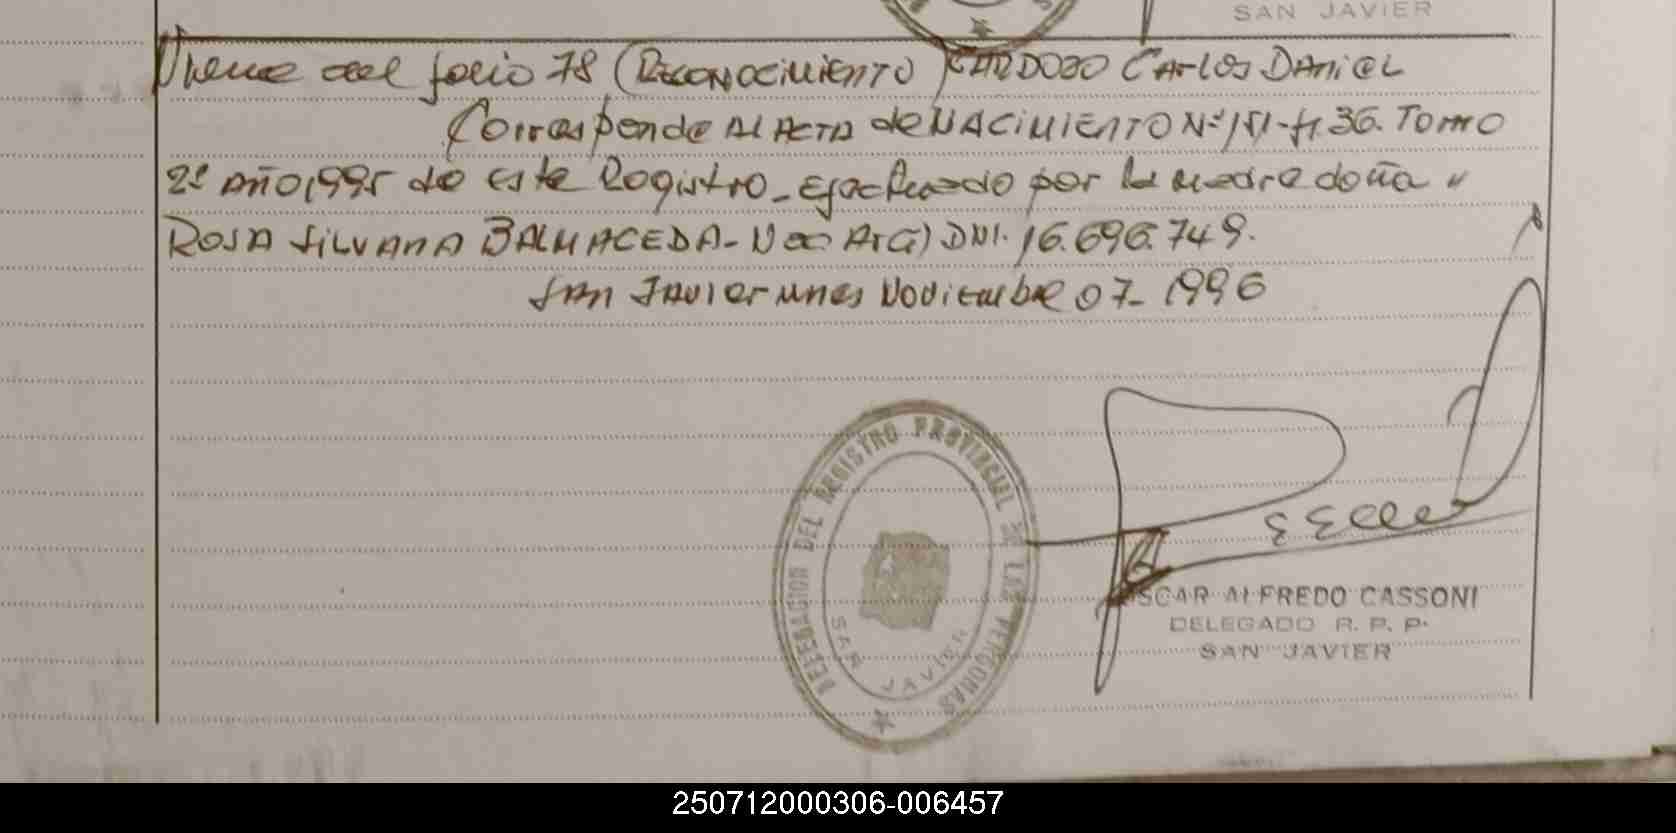 SAN JAVIER
Viene del folio 78 (RECONOCIMIENTO) CARDOZO CARLOS DANIEL
Corresponde AL ACTA de NACIMIENTO Nº 151-fº 36. Tomo
2º AÑO 1995 de este Registro_ efectuado por la madre doña "
ROSA SILVANA BALMACEDA- N ARG) DNI. 16.696.749.
SAN JAVIER Noviembre 07- 1996
DELEGACION DEL REGISTRO PROVINCIAL DE LAS PERSONAS
SAN JAVIER
OSCAR ALFREDO CASSONI
DELEGADO R. P. P.
SAN JAVIER
250712000306-006457